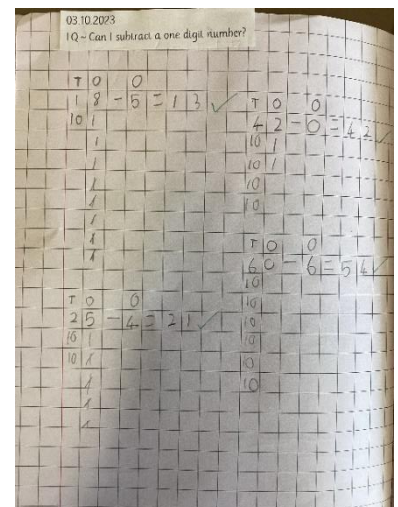 03.10.2023
IQ ~ Can I subtract a one digit number?
T O O
1 8 - 5 = 1 3 ✓
10 1
1
1
1
1
1
1
1
T O O
2 5 - 4 = 2 1 ✓
10 1
10 1
1
1
1
T O O
4 2 - 0 = 4 2 ✓
10 1
10 1
10
10
T O O
6 0 - 6 = 5 4 ✓
10
10
10
10
10
10